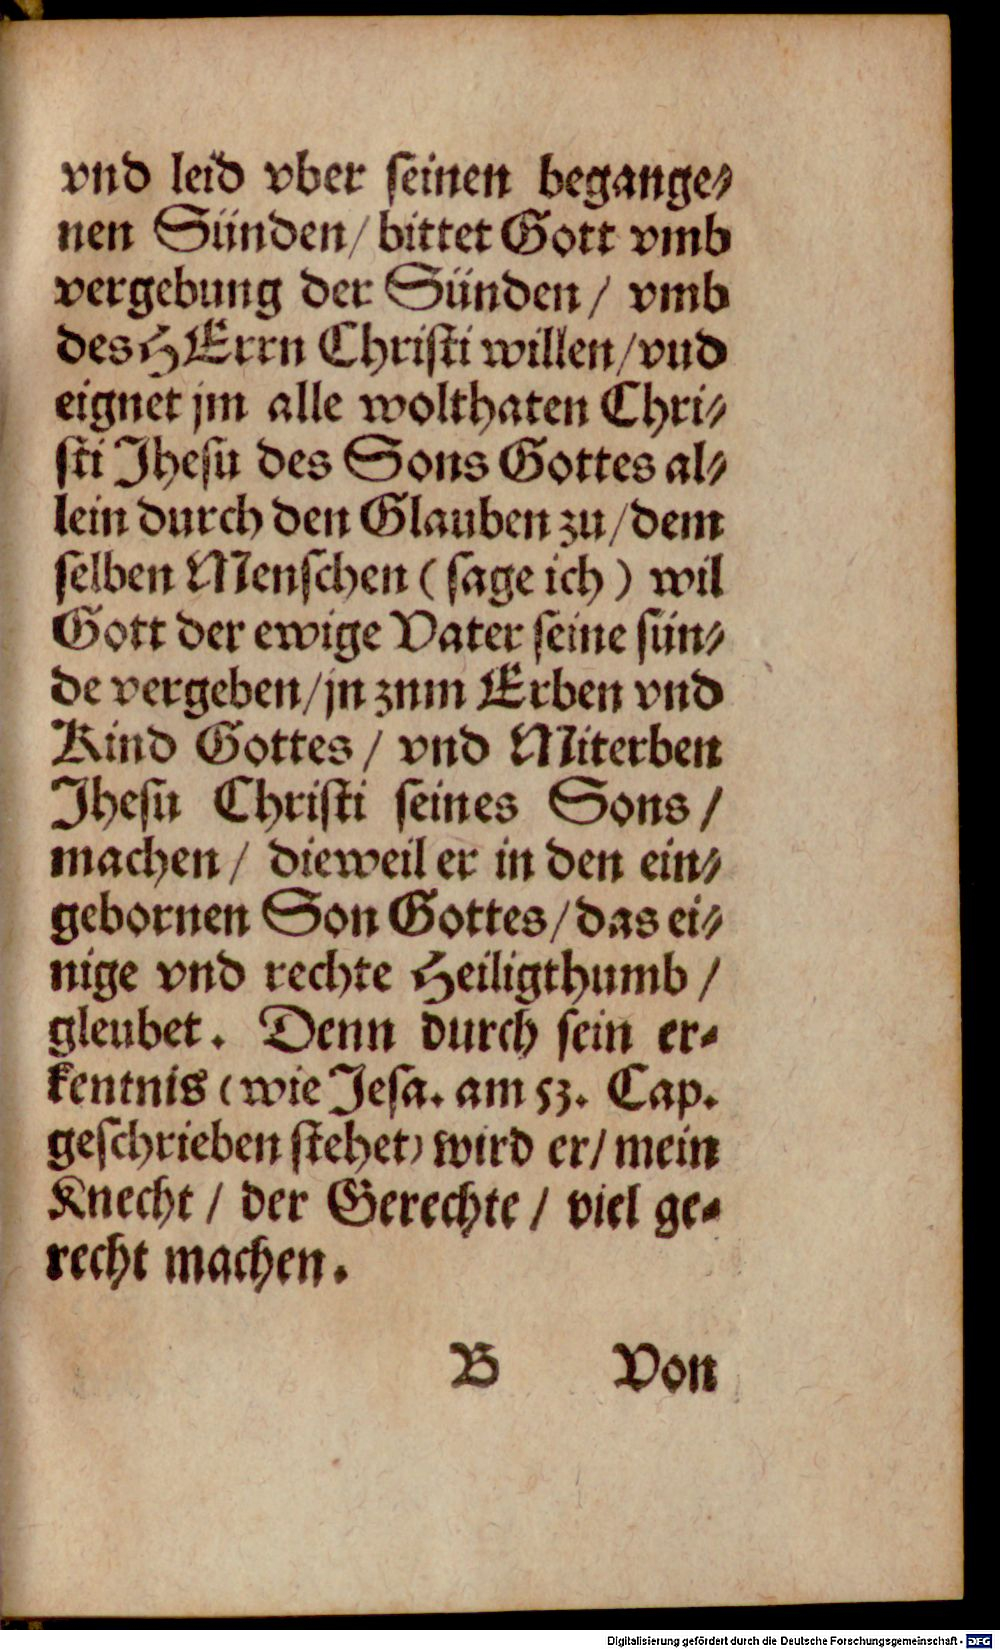 vnd leid vber seinen begange⸗
nen Sünden/ bittet Gott vmb
vergebung der Sünden / vmb
des HErrn Christi willen/vud
eignet jm alle wolthaten Chri⸗
sti Jhesu des Sons Gottes al⸗
lein durch den Glauben zu/dem
selben Menschen ( sage ich ) wil
Gott der ewige Vater seine sün⸗
de vergeben/jn znm Erben vnd
Kind Gottes / vnd Miterben
Jhesu Christi seines Sons /
machen / dieweil er in den ein⸗
gebornen Son Gottes/das ei⸗
nige vnd rechte Heiligthumb /
gleubet. Denn durch sein er⸗
kentnis (wie Jesa. am 53. Cap.
geschrieben stehet) wird er/ mein
Knecht / der Gerechte / viel ge⸗
recht machen.
B Von
Digitalisierung gefördert durch die Deutsche Forschungsgemeinschaft - DFG